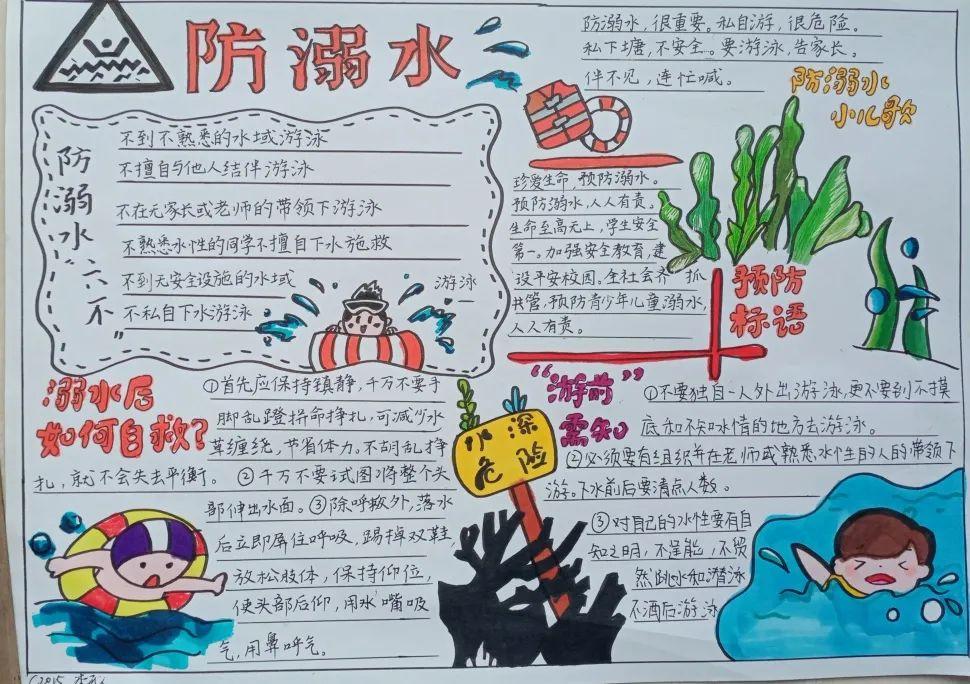 防溺水
防溺水，很重要。私自游，很危险。
私下塘，不安全。要游泳，告家长。
伴不见，连忙喊。
防溺水
小儿歌
防溺水"六不"
不到不熟悉的水域游泳
不擅自与他人结伴游泳
不在无家长或老师的带领下游泳
不熟悉水性的同学不擅自下水施救
不到无安全设施的水域
游泳
不私自下水游泳
珍爱生命，预防溺水。
预防溺水，人人有责。
生命至高无上，学生安全
第一。加强安全教育，建
设平安校园。全社会齐抓
共管，预防青少年儿童溺水，
人人有责。
预防
标语
溺水后
如何自救？
①首先应保持镇静，千万不要手
脚乱蹬拼命挣扎，可减少水
草缠绕，节省体力。不胡乱挣
扎，就不会失去平衡。②千万不要试图将整个头
部伸出水面。③除呼救外，落水
后立即屏住呼吸，踢掉双鞋，
放松肢体，保持仰位，
使头部后仰，用水嘴吸
气，用鼻呼气。
水深
危险
"游前"
需知
①不要独自一人外出游泳，更不要到不摸
底和不知水情的地方去游泳。
②必须要有组织并在老师或熟悉水性的人的带领下
游。下水前后要清点人数。
③对自己的水性要有自
知之明，不逞能，不贸
然跳水和潜泳
不酒后游泳
2015